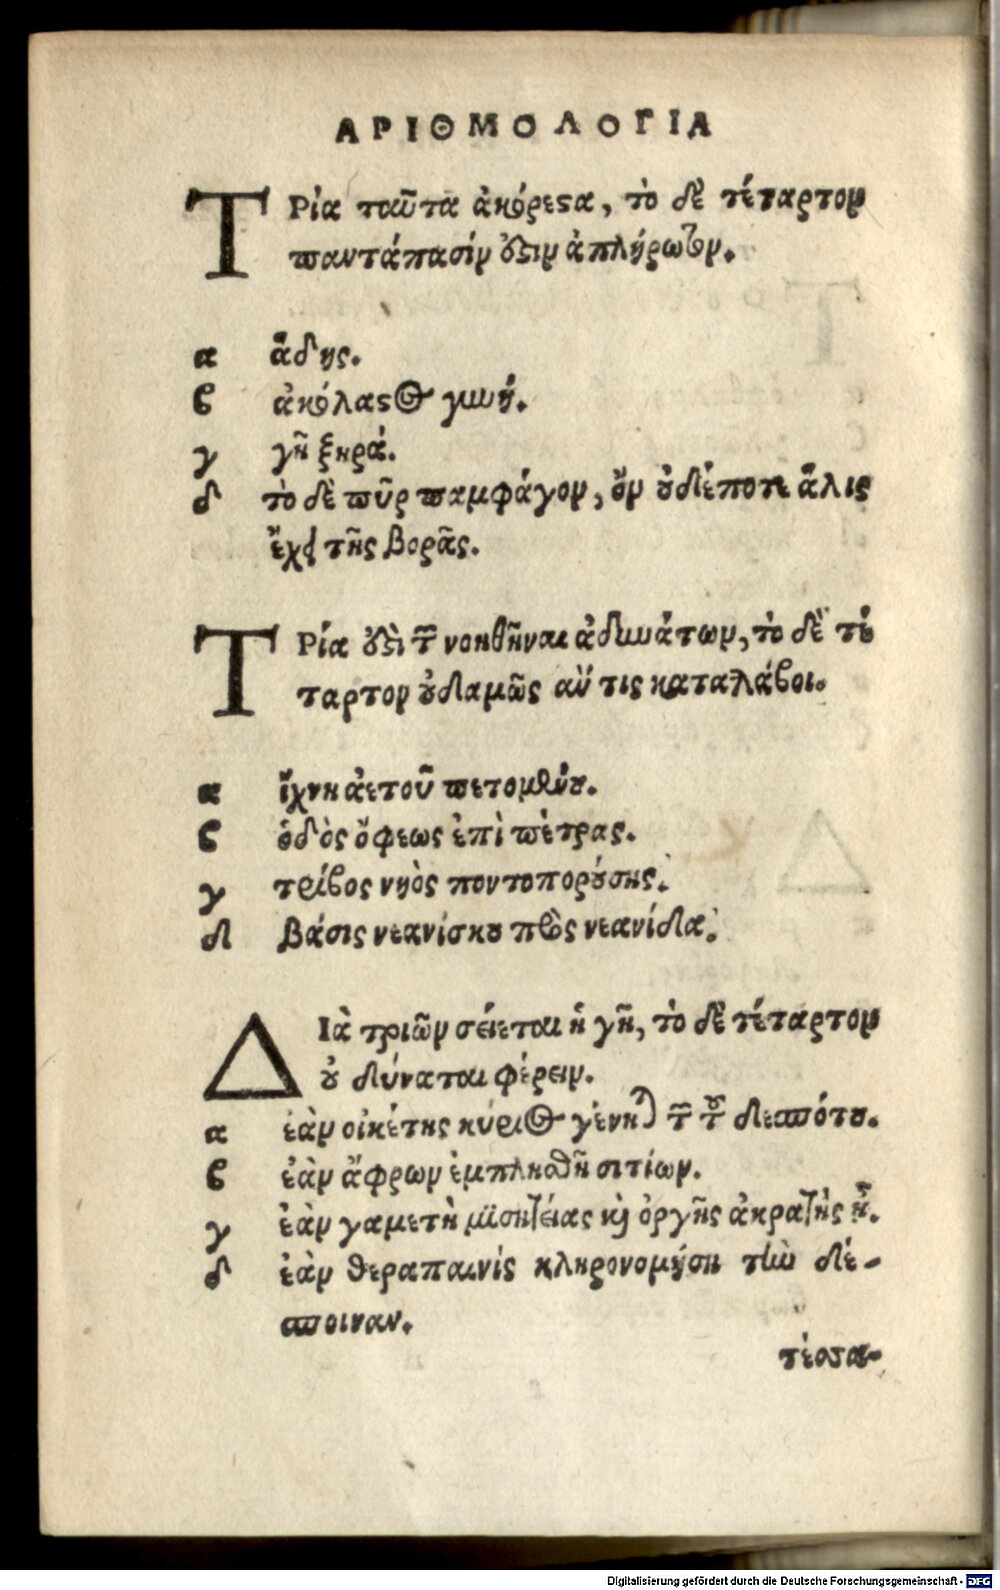 ΑΡΙΘΜΟΛΟΓΙΑ
ΤΡία ταῦτα ἀκόρεϛα, τὸ δὲ τέταρτον
παντάπασίν ὅϛιν ἀπλήρωτον.
α ἅδης.
ϐ ἀκόλαϛος γυνή.
γ γῆ ξηρά.
δ τὸ δὲ πῦρ παμφάγον, ὃν ȣ̓δέποτε ἅλις
ἔχει τῆς βορᾶς.
ΤΡία ὅϛὶ τ͂ νοηθῆναι ἀδυνάτων, τὸ δὲ τέ
ταρτον ȣ̓δαμῶς ἄν τις καταλάϐοι.
α ἴχνη ἀετοῦ πετομένȣ.
ϐ ὁδὸς ὄφεως ἐπὶ πέτρας.
γ τρίϐος νηὸς ποντοπορȣ́σης.
δ βάσις νεανίσκȣ πρὸς νεανίδα.
ΔΙὰ τριῶν σείεται ἡ γῆ, τὸ δὲ τέταρτον
ȣ̓ δύναται φέρειν.
α ἐὰν οἰκέτης κύριος γένηται τ͂ τȣ͂ δεσπότȣ.
ϐ ἐὰν ἄφρων ἐμπλησθῆ σιτίων.
γ ἐὰν γαμετὴ μισητείας κὶ ὀργῆς ἀκρατὴς ᾖ.
δ ἐὰν θεραπαινὶς κληρονομήση τὴν δέ-
σποιναν.
τέσσα-
Digitalisierung gefördert durch die Deutsche Forschungsgemeinschaft - DFG